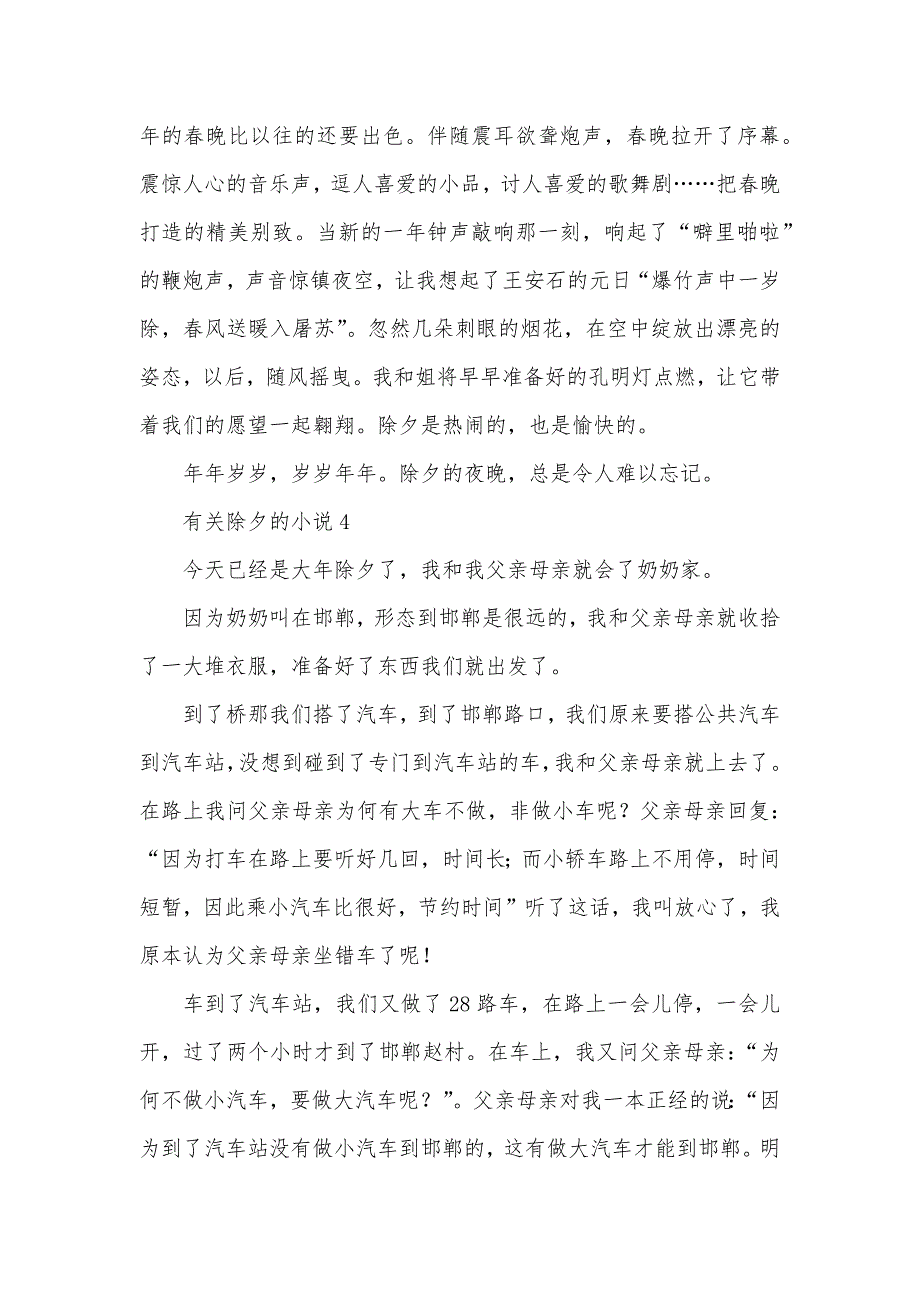 年的春晚比以往的还要出色。伴随震耳欲聋炮声，春晚拉开了序幕。
震惊人心的音乐声，逗人喜爱的小品，讨人喜爱的歌舞剧……把春晚
打造的精美别致。当新的一年钟声敲响那一刻，响起了“噼里啪啦”
的鞭炮声，声音惊镇夜空，让我想起了王安石的元日“爆竹声中一岁
除，春风送暖入屠苏”。忽然几朵刺眼的烟花，在空中绽放出漂亮的
姿态，以后，随风摇曳。我和姐将早早准备好的孔明灯点燃，让它带
着我们的愿望一起翱翔。除夕是热闹的，也是愉快的。
年年岁岁，岁岁年年。除夕的夜晚，总是令人难以忘记。
有关除夕的小说 4
今天已经是大年除夕了，我和我父亲母亲就会了奶奶家。
因为奶奶叫在邯郸，形态到邯郸是很远的，我和父亲母亲就收拾
了一大堆衣服，准备好了东西我们就出发了。
到了桥那我们搭了汽车，到了邯郸路口，我们原来要搭公共汽车
到汽车站，没想到碰到了专门到汽车站的车，我和父亲母亲就上去了。
在路上我问父亲母亲为何有大车不做，非做小车呢？父亲母亲回复：
“因为打车在路上要听好几回，时间长；而小轿车路上不用停，时间
短暂，因此乘小汽车比很好，节约时间”听了这话，我叫放心了，我
原本认为父亲母亲坐错车了呢！
车到了汽车站，我们又做了 28 路车，在路上一会儿停，一会儿
开，过了两个小时才到了邯郸赵村。在车上，我又问父亲母亲：“为
何不做小汽车，要做大汽车呢？”。父亲母亲对我一本正经的说：“因
为到了汽车站没有做小汽车到邯郸的，这有做大汽车才能到邯郸。明